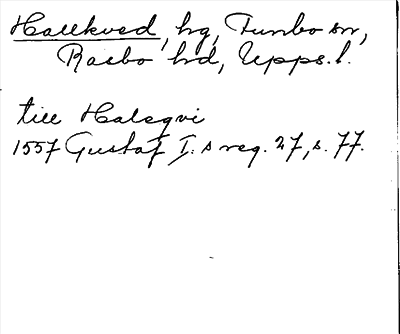 Hallkved, hg, Funbo sn,
Rasbo hd, Upps. l.
till Halsqvi
1557 Gustaf I:s reg. 27, s. 77.